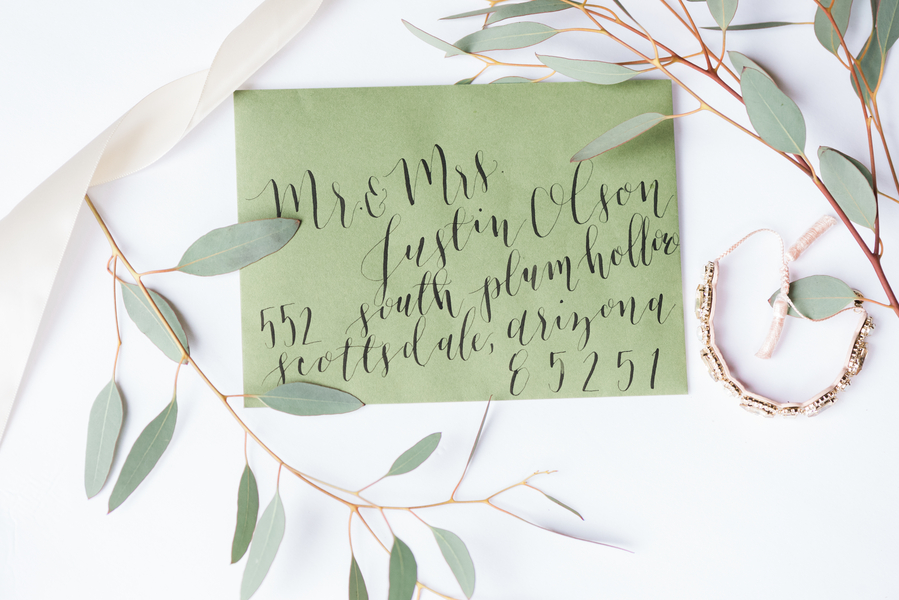 Mr. & Mrs.
Justin Olson
552 south plum hollow
scottsdale, arizona
85251